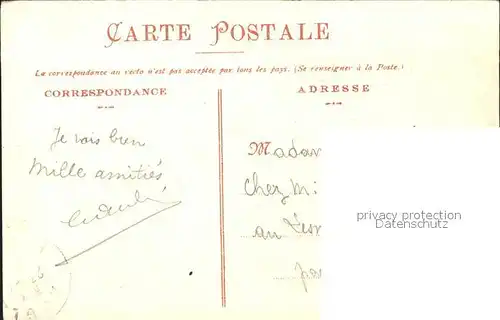 CARTE POSTALE
La correspondance au verso n'est pas acceptée par tous les pays. (Se renseigner à la Poste.)
CORRESPONDANCE
ADRESSE
Je vais bien
Mille amitiés
Madam
Chez M
au
privacy protection
Datenschutz